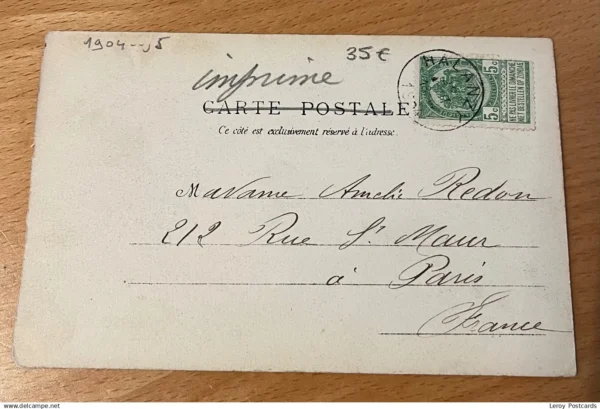 1904-05
35€
imprimé
HALANZY
5c 5c
NE PAS LIVRER LE DIMANCHE
NIET BESTELLEN OP ZONDAG
CARTE POSTALE
Ce côté est exclusivement réservé à l'adresse.
Madame Amelie Redon
212 Rue St Maur
à Paris
France
Leroy Postcards
delcampe.net